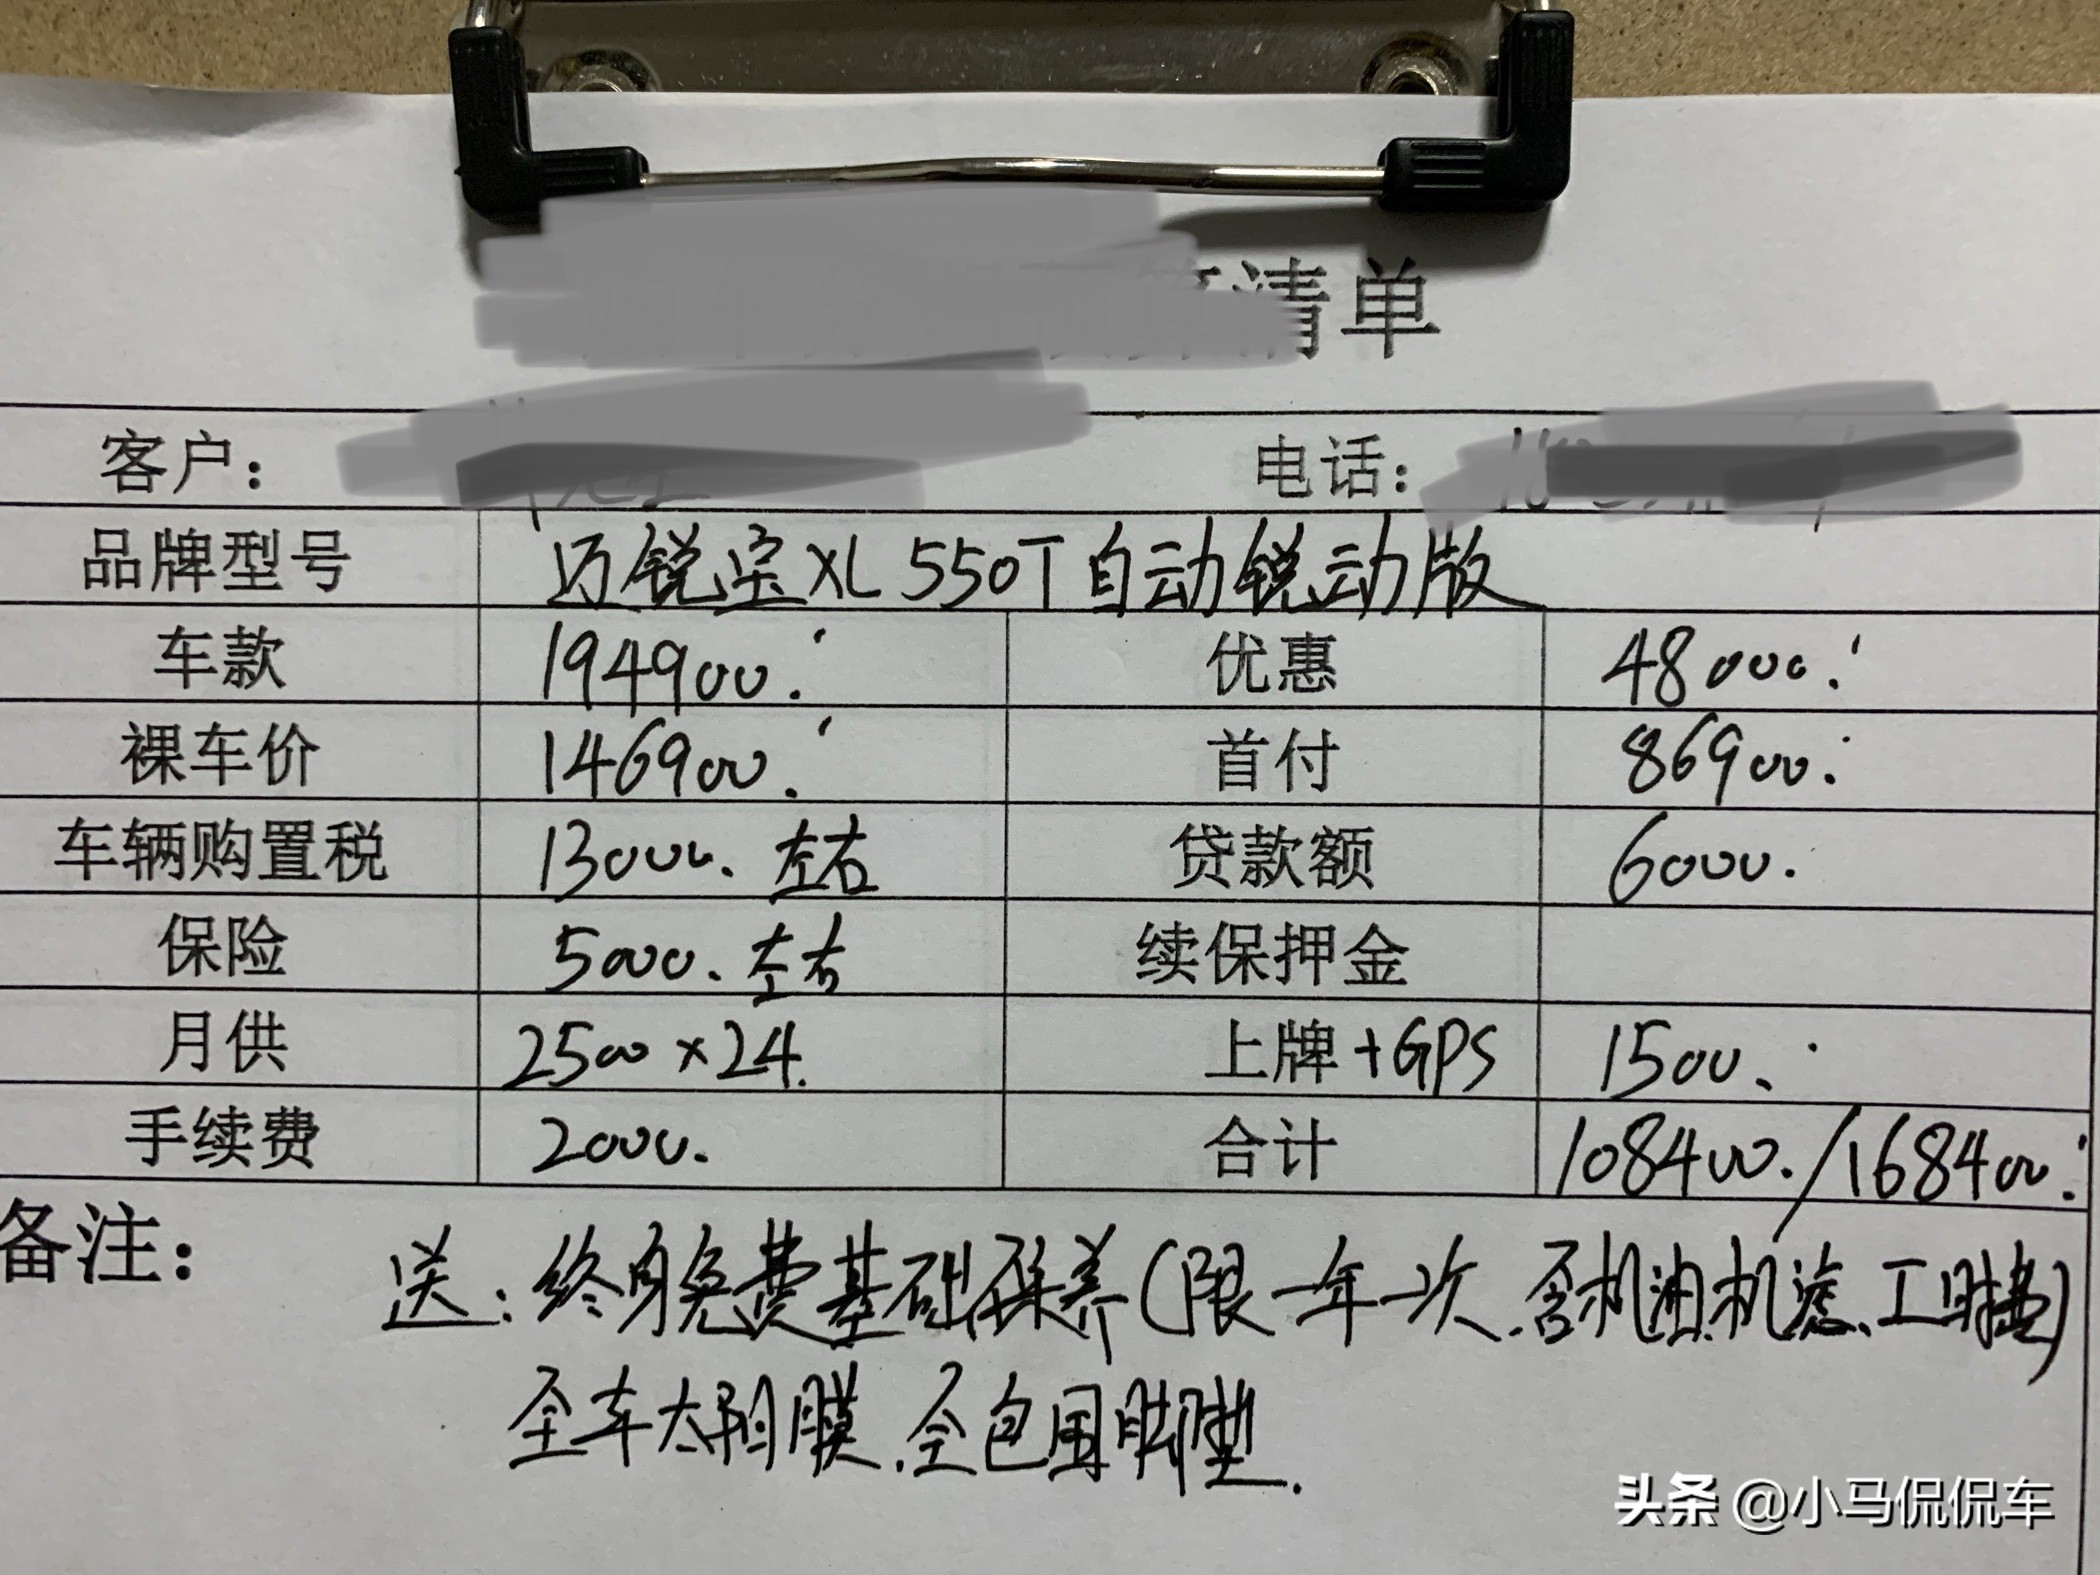 清单
客户： 电话：
品牌型号 迈锐宝XL 550T自动锐动版
车款 194900. 优惠 48000.
裸车价 146900. 首付 86900.
车辆购置税 13000. 左右 贷款额 6000.
保险 5000. 左右 续保押金
月供 2500×24. 上牌+GPS 1500.
手续费 2000. 合计 108400./168400.
备注： 送：终身免费基础保养(限一年一次.含机油.机滤、工时费)
全车太阳膜.全包围脚垫.
头条 @小马侃侃车